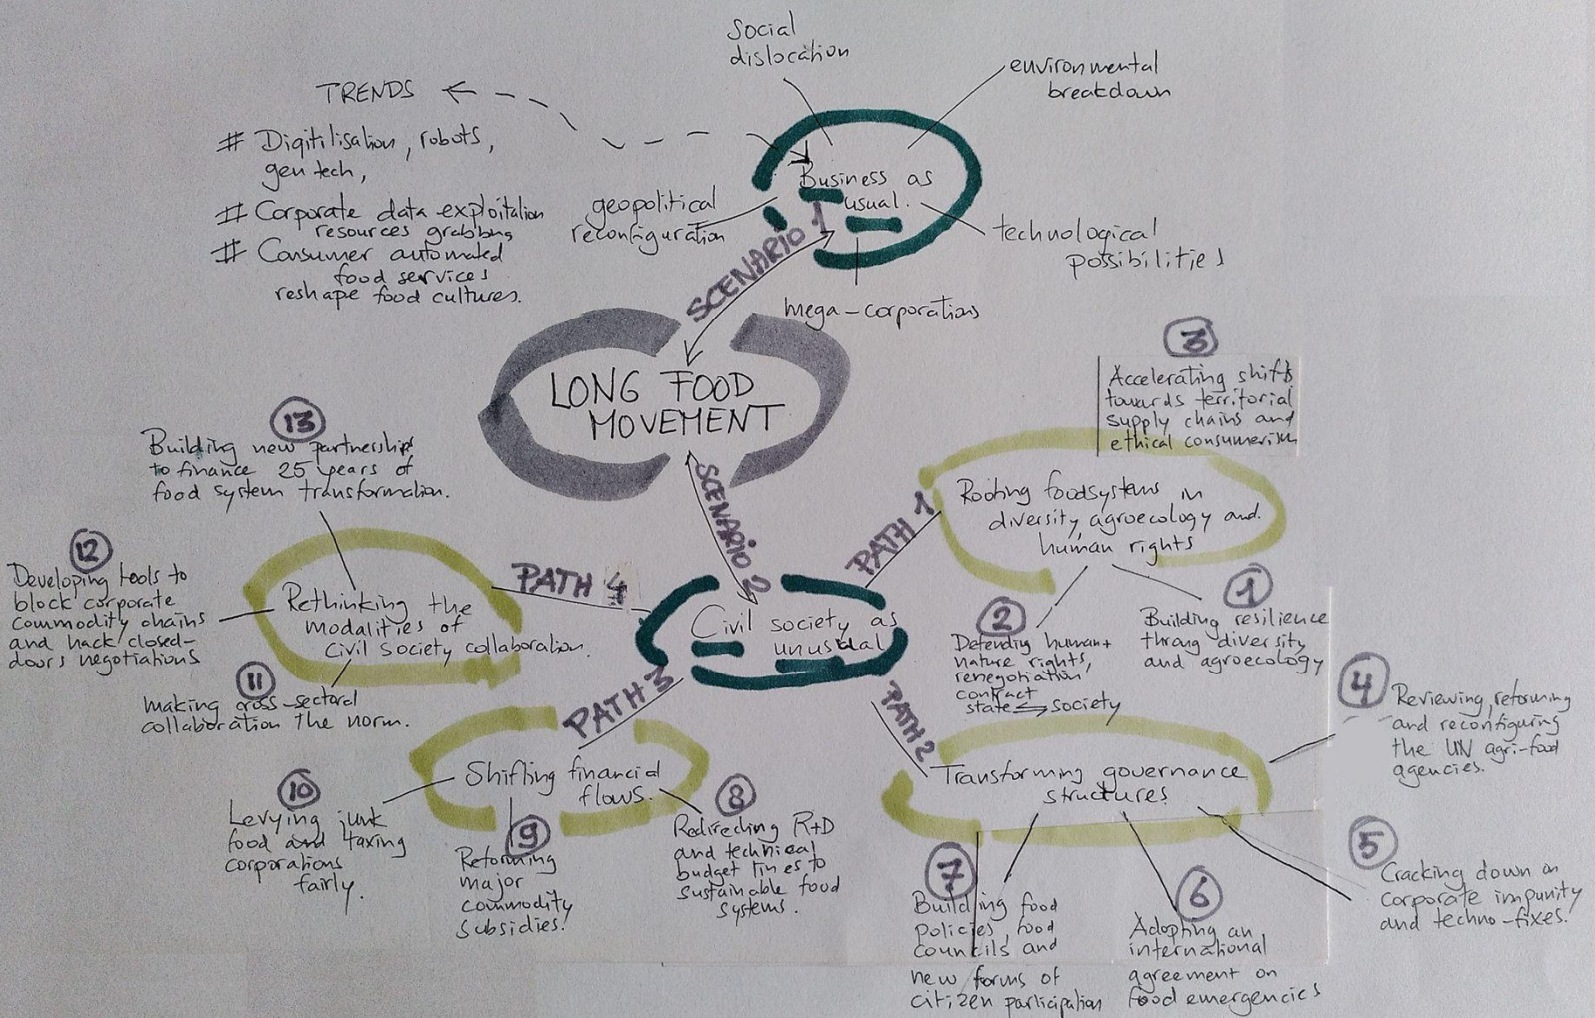 Social
dislocation
environmental
breakdown
TRENDS
# Digitilisation, robots,
gen tech,
# Corporate data exploitation
resources grabbing
# Consumer automated
food services
reshape food cultures.
Business as
usual.
geopolitical
reconfiguration
technological
possibilities
mega-corporations
SCENARIO 1
LONG FOOD
MOVEMENT
SCENARIO 2
Civil society as
unusual
PATH 1
Rooting foodsystems in
diversity, agroecology and
human rights
1
Building resilience
throug diversity
and agroecology
2
Defending human+
nature rights,
renegotiation
contract
state ⇆ society
3
Accelerating shift
towards territorial
supply chains and
ethical consumerism
PATH 2
Transforming governance
structures
4
Reviewing, reforming
and reconfiguring
the UN agri-food
agencies.
5
Cracking down on
corporate impunity
and techno-fixes.
6
Adopting an
international
agreement on
food emergencies
7
Building food
policies, food
councils and
new forms of
citizen participation
PATH 3
Shifting financial
flows.
8
Redirecting R+D
and technical
budget lines to
sustainable food
systems.
9
Reforming
major
commodity
subsidies!
10
Levying junk
food and taxing
corporations
fairly.
PATH 4
Rethinking the
modalities of
Civil Society collaboration.
11
Making cross-sectoral
collaboration the norm.
12
Developing tools to
block corporate
commodity chains
and hack closed-
doors negotiations
13
Building new partnership
to finance 25 years of
food system transformation.